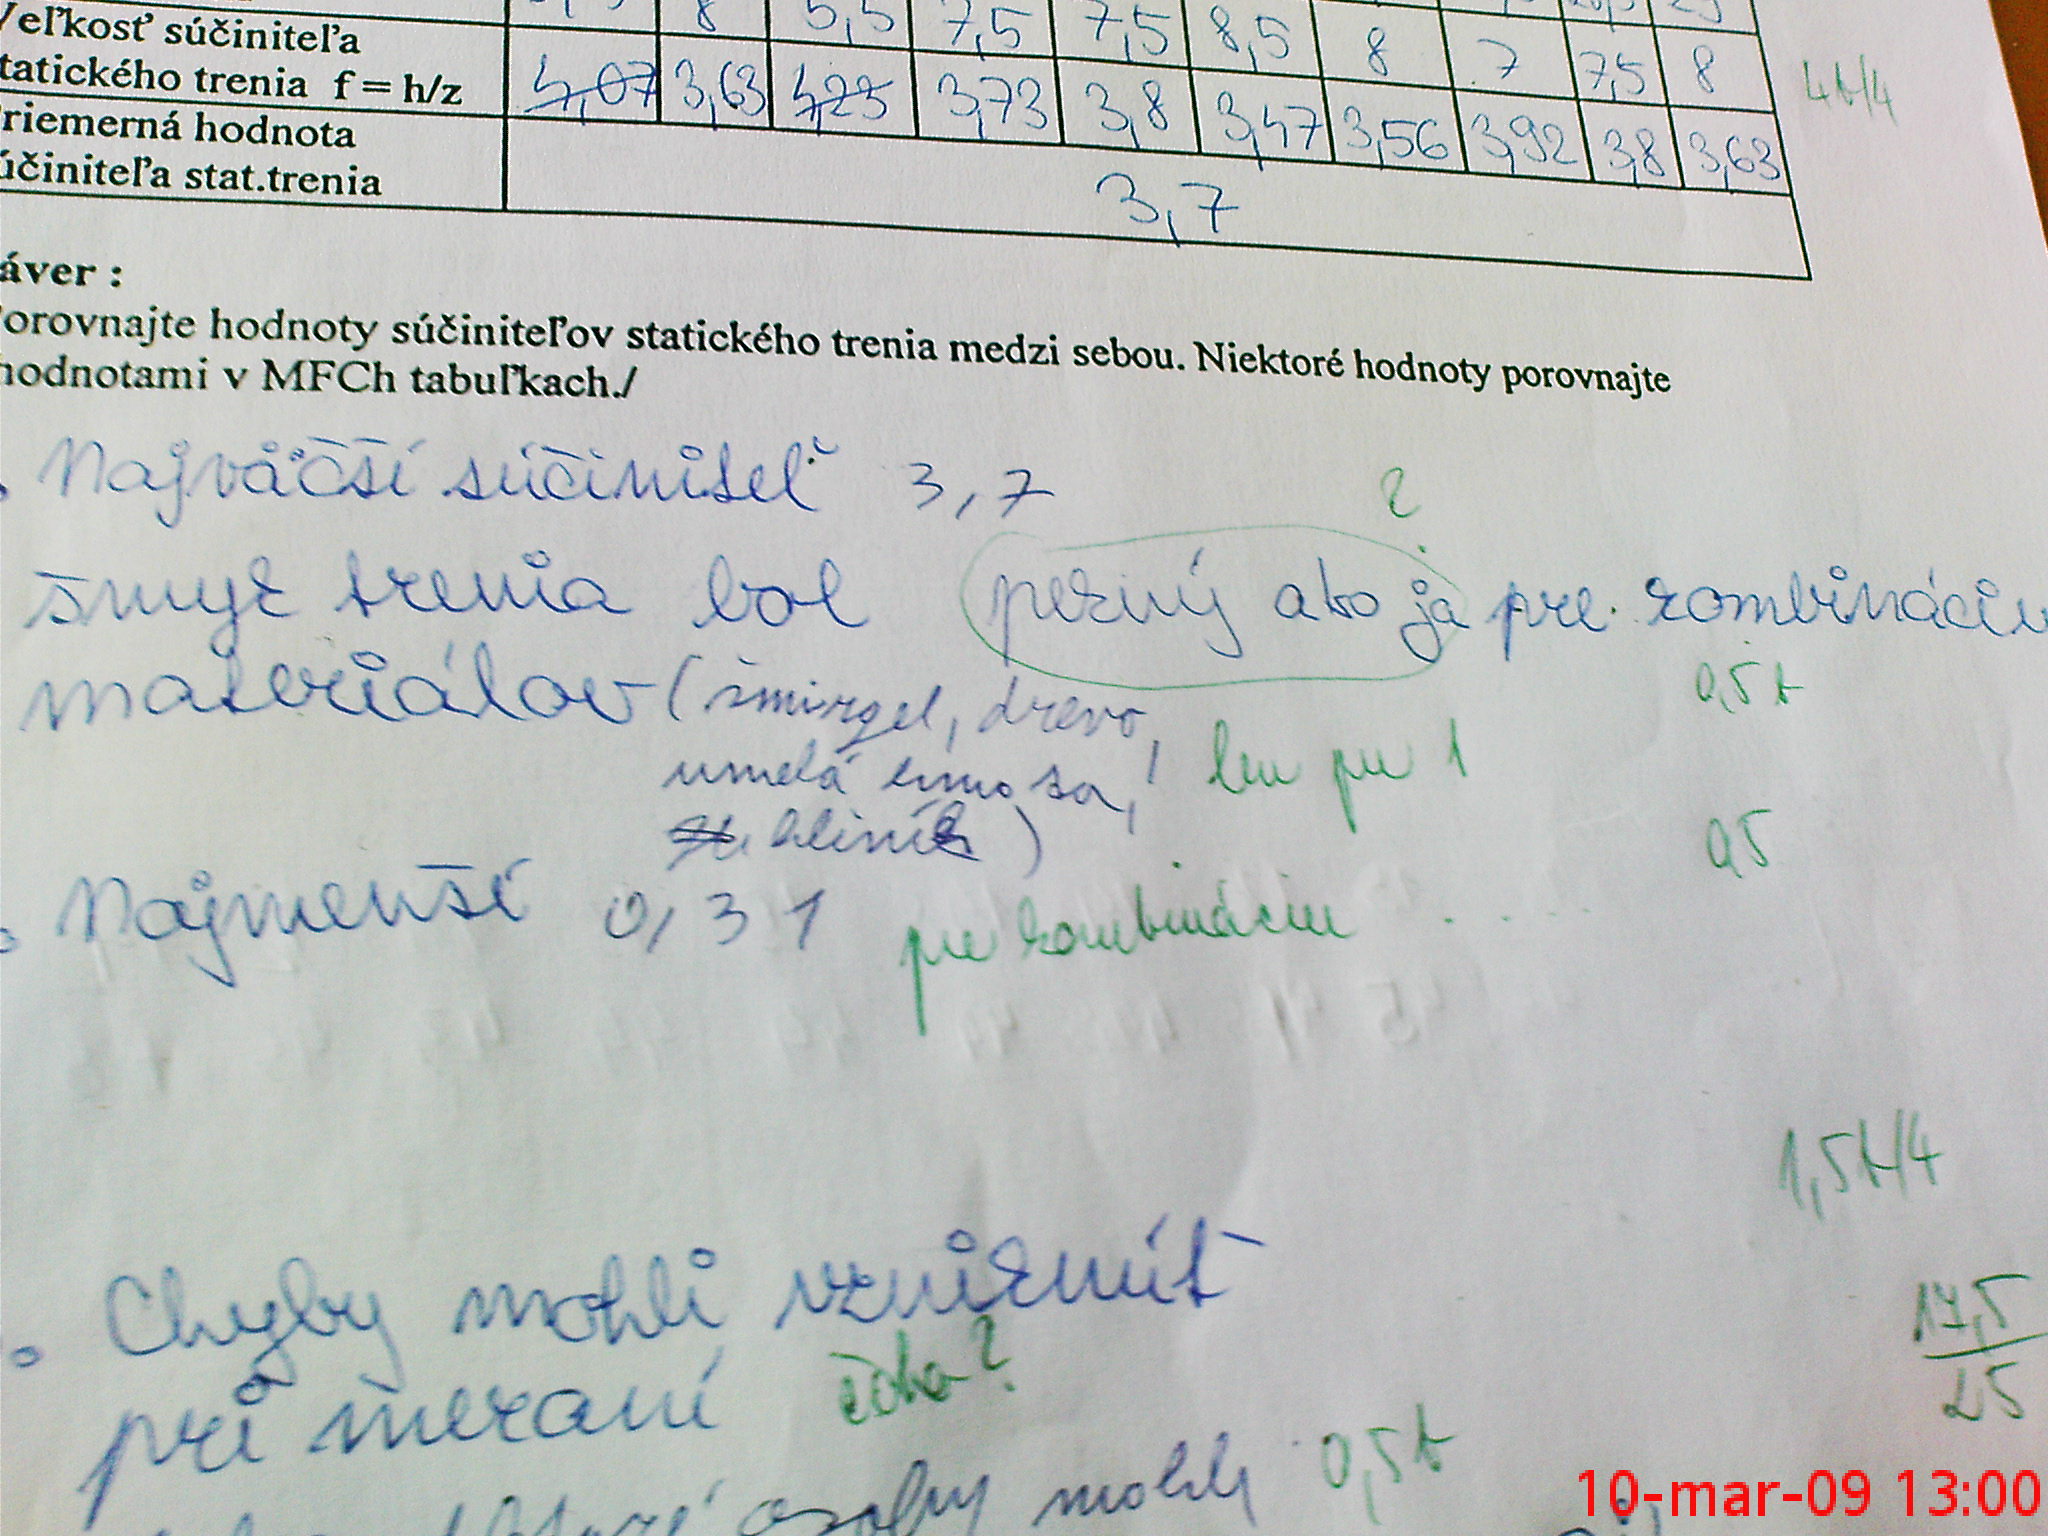 8 5,5 7,5 7,5 8,5 8 7 7,5 8
Veľkosť súčiniteľa
statického trenia f = h/z 4,07 3,63 4,23 3,73 3,8 3,47 3,56 3,92 3,8 3,63
4b/4
Priemerná hodnota
súčiniteľa stat.trenia 3,7
áver :
Porovnajte hodnoty súčiniteľov statického trenia medzi sebou. Niektoré hodnoty porovnajte
hodnotami v MFCh tabuľkach./
Najväčší súčiniteľ 3,7
?
šmyk trenia bol pekný ako ja pre kombináciu
materiálov (šmirgel, drevo,
0,5 b
umelá hmota,
len pre 1
hliník)
0,5
Najmenší 0,31 pre kombináciu ....
1,5b/4
Chyby mohli vzniknúť
17,5
25
pri meraní čoho?
osoby mohli 0,5b
10-mar-09 13:00